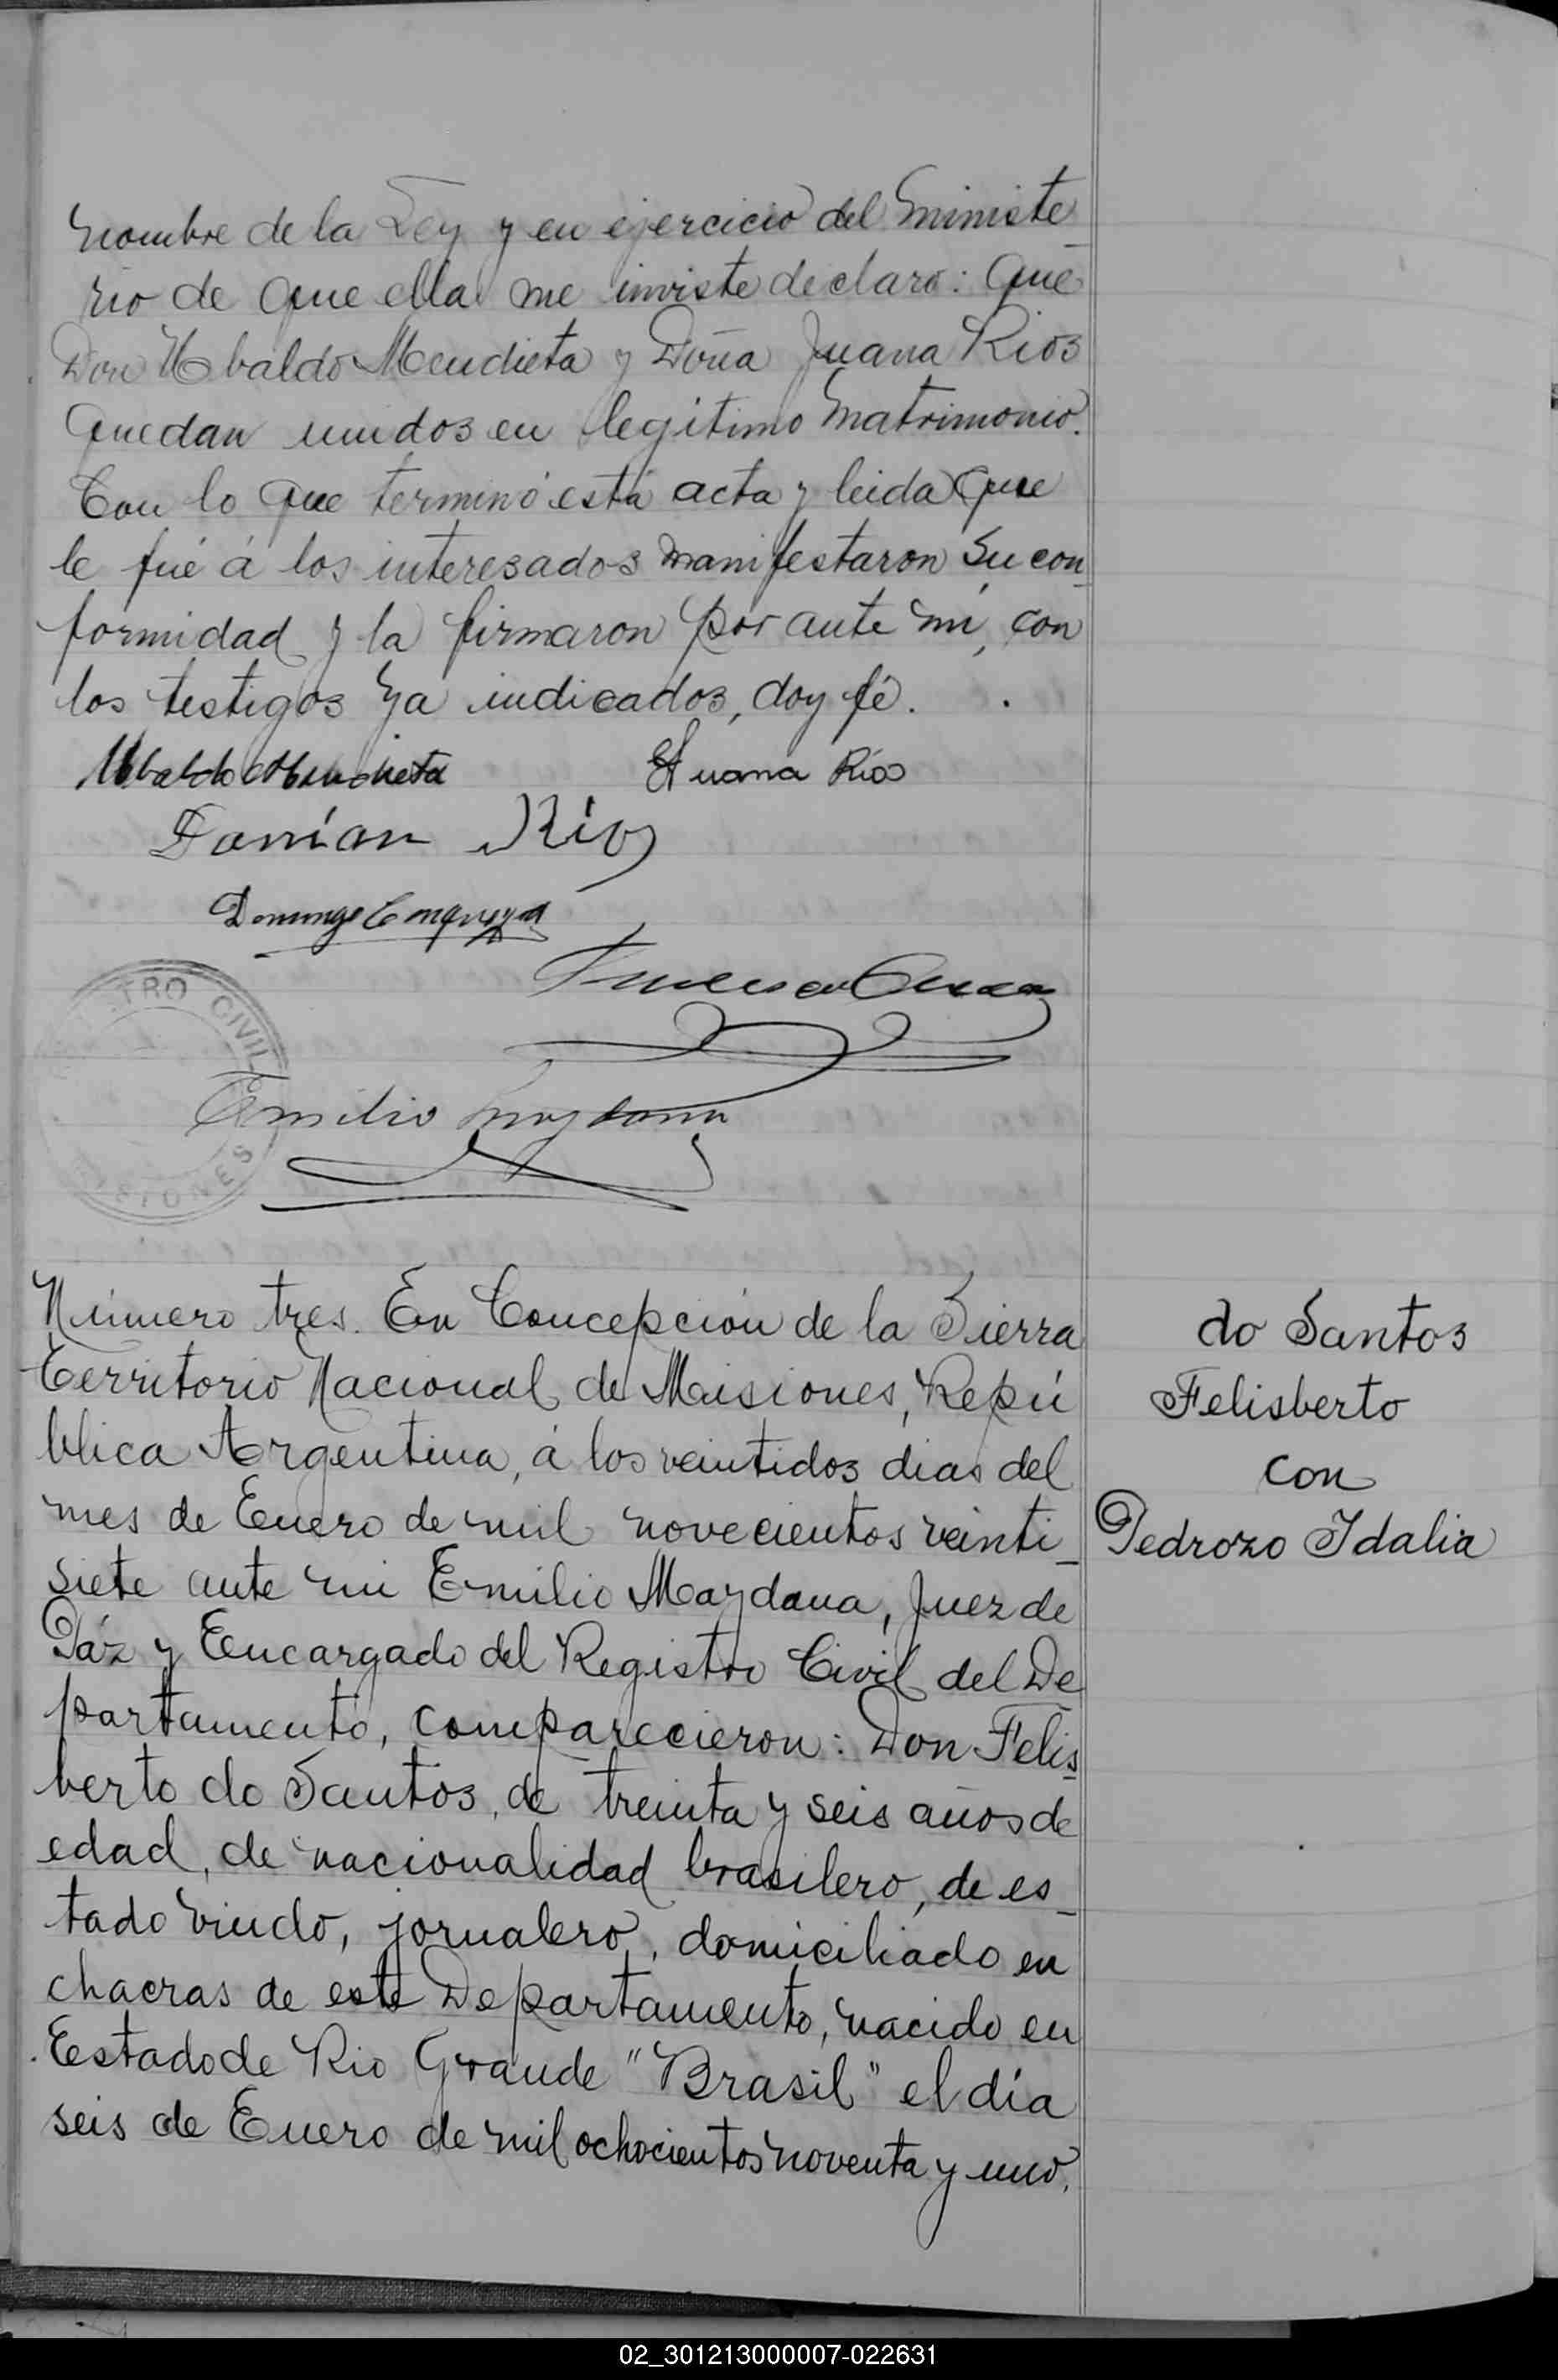 nombre de la Ley y en ejercicio del ministe_
rio de que ella me inviste declaro: que
Don Ubaldo Mendieta y Doña Juana Rios
quedan unidos en legitimo matrimonio.
Con lo que terminó esta acta y leida que
le fué á los interesados manifestaron su con_
formidad y la firmaron por ante mi, con
los testigos ya indicados, doy fé.
Ubaldo Mendieta Juana Ríos
Damían Ríos
Domingo
REGISTRO CIVIL
Emilio Maydana
MISIONES
Número tres. En Concepción de la Sierra
Territorio Nacional de Misiones, Repú
blica Argentina, á los veintidos dias del
mes de Enero de mil novecientos veinti_
siete ante mi Emilio Maydana, Juez de
Páz y Encargado del Registro Civil del De
partamento, comparecieron: Don Felis_
berto do Santos, de treinta y seis años de
edad, de nacionalidad brasilero, de es_
tado viudo, jornalero, domiciliado en
chacras de este Departamento, nacido en
Estado de Rio Grande "Brasil" el día
seis de Enero de mil ochocientos noventa y uno,
do Santos
Felisberto
con
Pedrozo Idalia
02_301213000007-022631